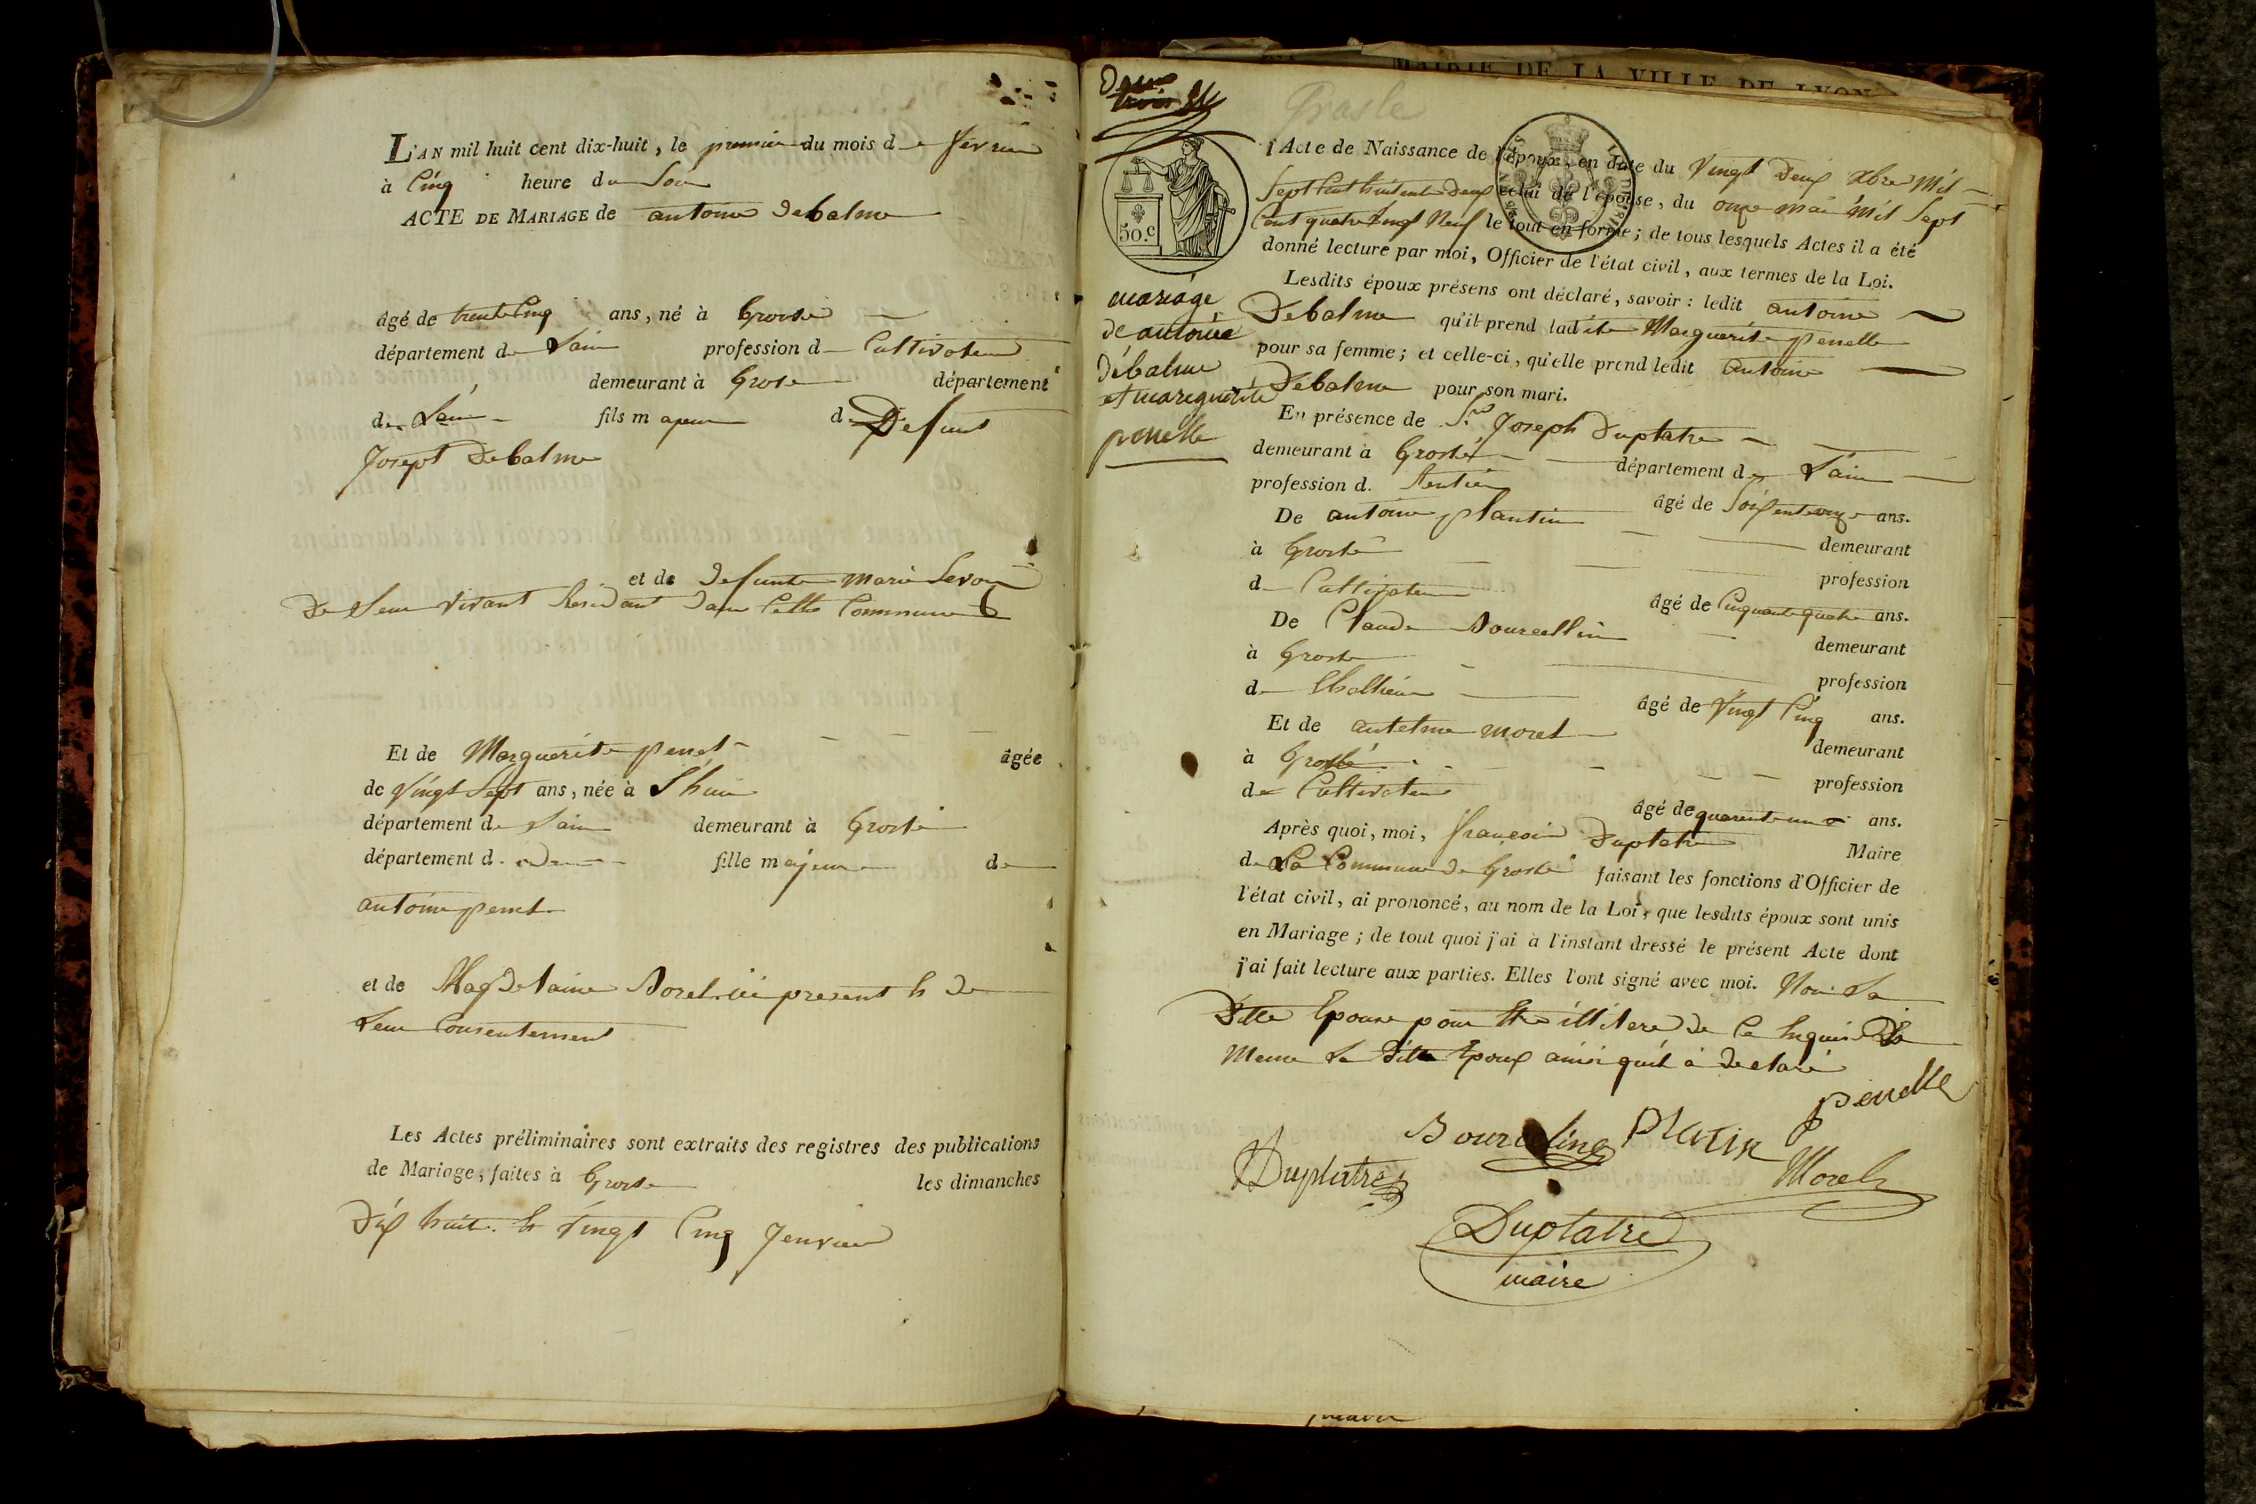 L'AN mil huit cent dix-huit, le premier du mois de fevrier
à Cinq heure du Soir
ACTE DE MARIAGE de antoine Debalme
âgé de trente Cinq ans, né à Grosle
département de Lain profession de Cultivateur
demeurant à Grosle département
de Lain fils majeur de Defunt
Joseph Debalme
et de defunte Marie
De Leur vivant Residant dans Cette Commune
Et de Marguerite penet âgée
de Vingt Sept ans, née à Lhuis
département de Lain demeurant à Groslé
département d. fille majeure de
antoine penet
et de Magdelaine Borel ici present & de
Leur Consentement
Les Actes préliminaires sont extraits des registres des publications
de Mariage, faites à Grosle les dimanches
Dix huit & Vingt Cinq Jenvier
MAIRIE DE LA VILLE DE LYON
Grosle
Acte de Naissance de l'époux, en date du Vingt Deux Xbre Mil
Sept Cent huitante Deux celui de l'épouse, du onze mai Mil Sept
Cent quatre Vingt Neuf le tout en forme; de tous lesquels Actes il a été
donné lecture par moi, Officier de l'état civil, aux termes de la Loi.
50.c
Lesdits époux présens ont déclaré, savoir : ledit antoine
Debalme qu'il prend ladite Marguerite penelle
pour sa femme; et celle-ci, qu'elle prend ledit antoine
Debalme pour son mari.
mariage
de antoine
débalme
et marguerite
penelle
En présence de Sr. Joseph Duplatre
demeurant à Groslé département de Lain
profession d. Rentier âgé de Soixente onze ans.
De antoine plantin demeurant
à Groslé profession
d Cultivateur âgé de Cinquante quatre ans.
De Claude Bourcellin demeurant
à Grosle profession
de âgé de Vingt Cinq ans.
Et de antelme morel demeurant
à Groslé profession
de Cultivateur âgé de quarente un ans.
Après quoi, moi, françois Duplatre Maire
de La Commune de Groslé faisant les fonctions d'Officier de
l'état civil, ai prononcé, au nom de la Loi, que lesdits époux sont unis
en Mariage; de tout quoi j'ai à l'instant dressé le présent Acte dont
j'ai fait lecture aux parties. Elles l'ont signé avec moi. Non La
Ditte Epouse pour Etre illitere de Ce Enquise De
Meme Le Ditte Epoux ainsi quil a declaré
penelle
Bourceling Plantin
Duplatre Morel
Duplatre
maire